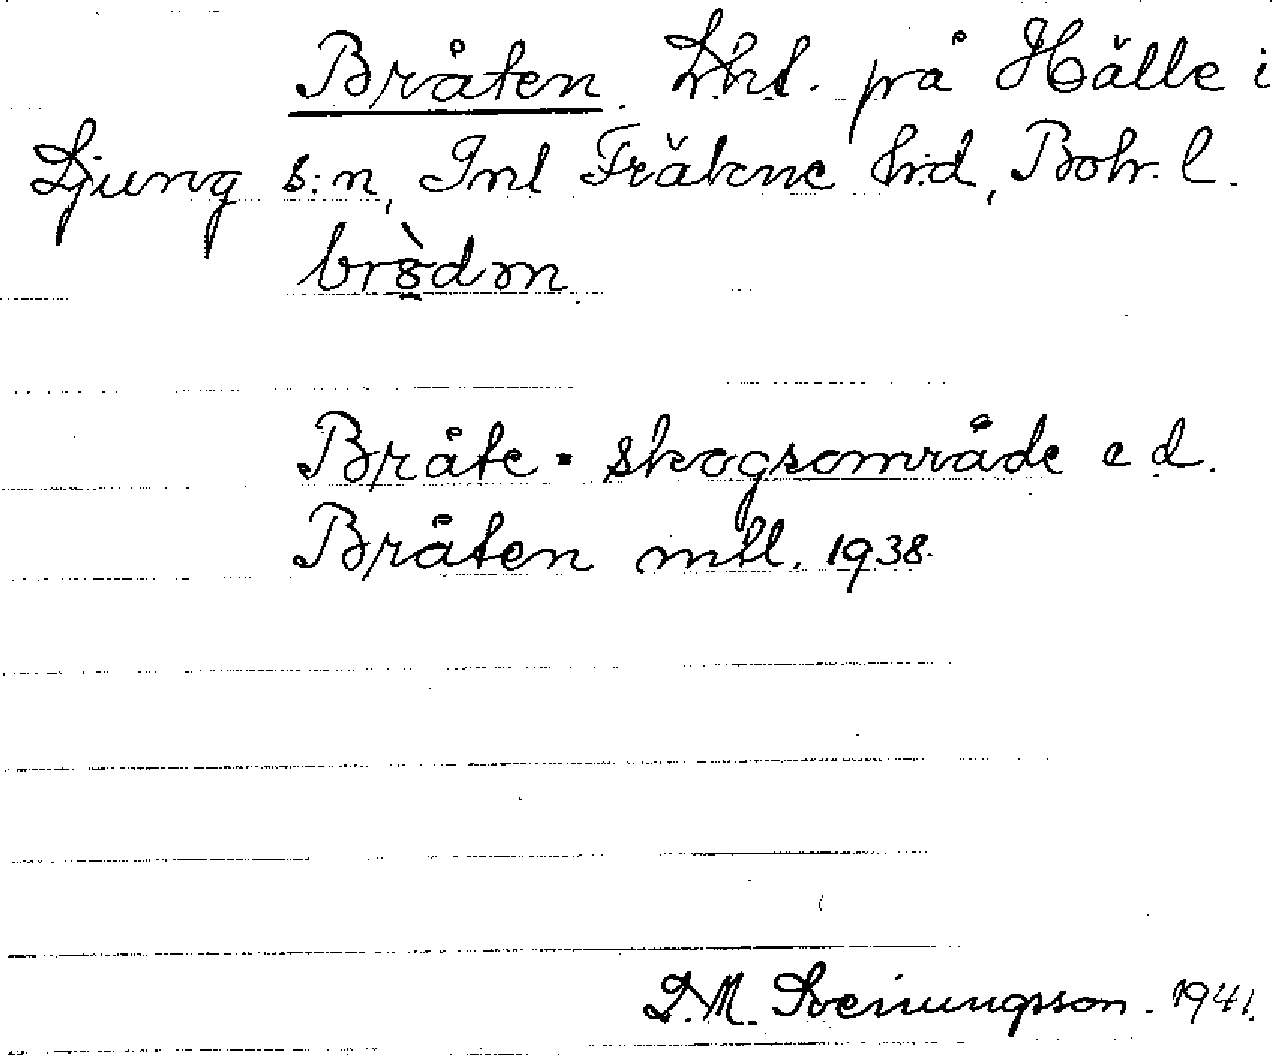 Bråten. Lht. på Hälle i
Ljung s:n, Inl Fräkne h:d, Boh. l.
Bråte = skogsområde e d.
Bråten mtl. 1938.
D. M. Sveinungsson. 1941.